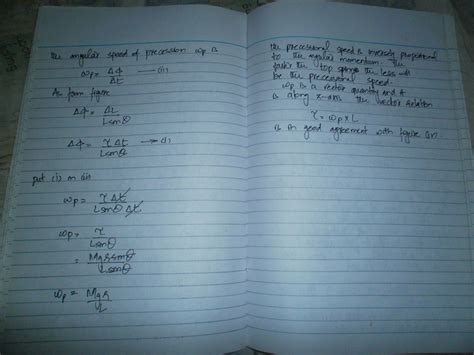 the angular speed of precession ωp is
ωp = Δφ/Δt — (i)
As from figure
Δφ = ΔL/Lsinθ
Δφ = τ Δt/Lsinθ — (ii)
put (ii) in (i)
ωp = τ Δt/Lsinθ Δt
ωp = τ/Lsinθ
= Mgr sinθ/Lsinθ
ωp = Mgr/L
the precessional speed is inversely proportional
to the angular momentum. The
faster the top springs the less
be the precessional speed.
ωp is a vector quantity and it
is along z-axis the vector relation
τ = ωp × L
is in good agreement with figure